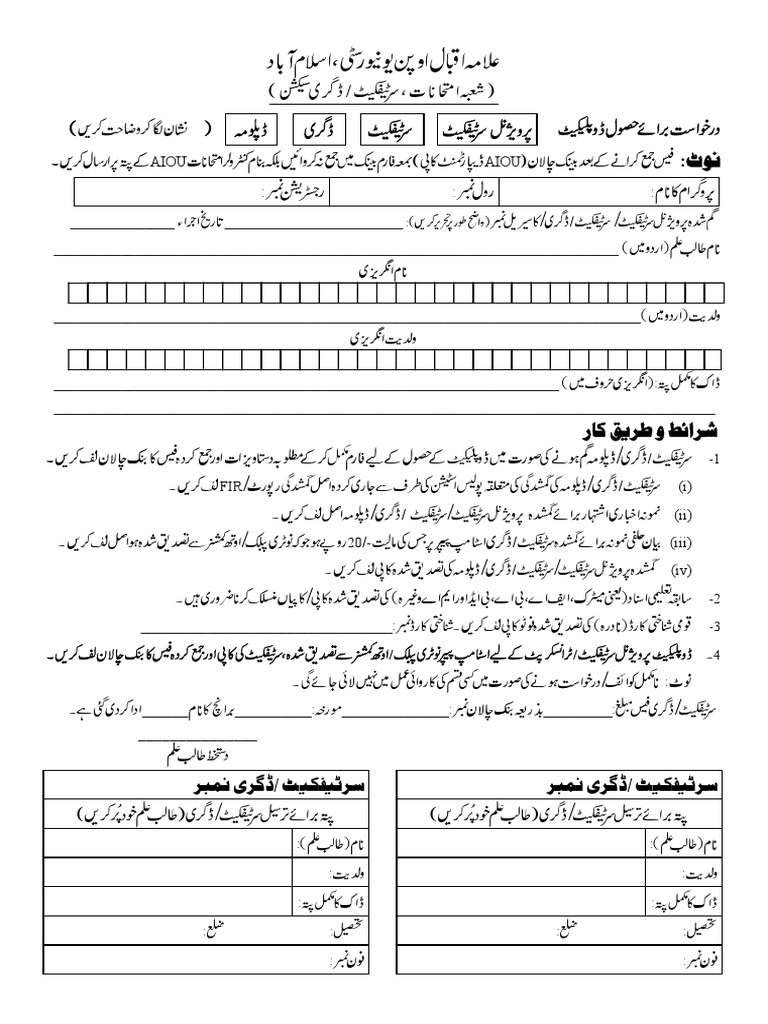 علامہ اقبال اوپن یونیورسٹی، اسلام آباد
(شعبہ امتحانات، سرٹیفکیٹ/ڈگری سیکشن)
درخواست برائے حصول ڈوپلیکیٹ پرویژنل سرٹیفکیٹ سرٹیفکیٹ ڈگری ڈپلومہ (نشان لگا کر وضاحت کریں)
نوٹ: فیس جمع کرانے کے بعد بینک چالان (AIOU ڈیپارٹمنٹ کاپی) بمعہ فارم بینک میں جمع نہ کروائیں بلکہ بنام کنٹرولر امتحانات AIOU کے پتہ پر ارسال کریں۔
پروگرام کا نام: رول نمبر: رجسٹریشن نمبر:
گم شدہ پرویژنل سرٹیفکیٹ/سرٹیفکیٹ/ڈگری/کا سیریل نمبر (واضح طور پر تحریر کریں): تاریخ اجراء
نام طالب علم (اردو میں)
نام انگریزی
ولدیت (اردو میں)
ولدیت انگریزی
ڈاک کا مکمل پتہ: (انگریزی حروف میں)
شرائط و طریق کار
1- سرٹیفکیٹ/ڈگری/ڈپلومہ گم ہونے کی صورت میں ڈوپلیکیٹ کے حصول کے لیے فارم مکمل کر کے مطلوبہ دستاویزات اور جمع کردہ فیس کا بنک چالان لف کریں۔
(i) سرٹیفکیٹ/ڈگری/ڈپلومہ کی گمشدگی کی متعلقہ پولیس اسٹیشن کی طرف سے جاری کردہ اصل گمشدگی رپورٹ/FIR لف کریں۔
(ii) نمونہ اخباری اشتہار برائے گمشدہ پرویژنل سرٹیفکیٹ/سرٹیفکیٹ/ڈگری/ڈپلومہ اصل لف کریں۔
(iii) بیان حلفی نمونہ برائے گمشدہ سرٹیفکیٹ/ڈگری اسٹامپ پیپر پر جس کی مالیت -/20 روپے ہو جو کہ نوٹری پبلک/اوتھ کمشنر سے تصدیق شدہ ہو اصل لف کریں۔
(iv) گمشدہ پرویژنل سرٹیفکیٹ/سرٹیفکیٹ/ڈگری/ڈپلومہ کی تصدیق شدہ کاپی لف کریں۔
2- سابقہ تعلیمی اسناد (یعنی میٹرک، ایف اے، بی اے، بی ایڈ اور ایم اے وغیرہ) کی تصدیق شدہ کاپی/کاپیاں منسلک کرنا ضروری ہیں۔
3- قومی شناختی کارڈ (نادرہ) کی تصدیق شدہ فوٹو کاپی لف کریں۔ شناختی کارڈ نمبر:
4- ڈوپلیکیٹ پرویژنل سرٹیفکیٹ/ٹرانسکرپٹ کے لیے اسٹامپ پیپر نوٹری پبلک/اوتھ کمشنر سے تصدیق شدہ، سرٹیفکیٹ کی کاپی اور جمع کردہ فیس کا بنک چالان لف کریں۔
نوٹ: نامکمل کوائف/درخواست ہونے کی صورت میں کسی قسم کی کاروائی عمل میں نہیں لائی جائے گی۔
سرٹیفکیٹ/ڈگری فیس مبلغ: بذریعہ بنک چالان نمبر: مورخہ: برانچ کا نام ادا کر دی گئی ہے۔
دستخط طالب علم
سرٹیفکیٹ/ڈگری نمبر
پتہ برائے ترسیل سرٹیفکیٹ/ڈگری (طالب علم خود پُر کریں)
نام (طالب علم):
ولدیت:
ڈاک کا مکمل پتہ:
تحصیل: ضلع:
فون نمبر:
سرٹیفکیٹ/ڈگری نمبر
پتہ برائے ترسیل سرٹیفکیٹ/ڈگری (طالب علم خود پُر کریں)
نام (طالب علم):
ولدیت:
ڈاک کا مکمل پتہ:
تحصیل: ضلع:
فون نمبر: